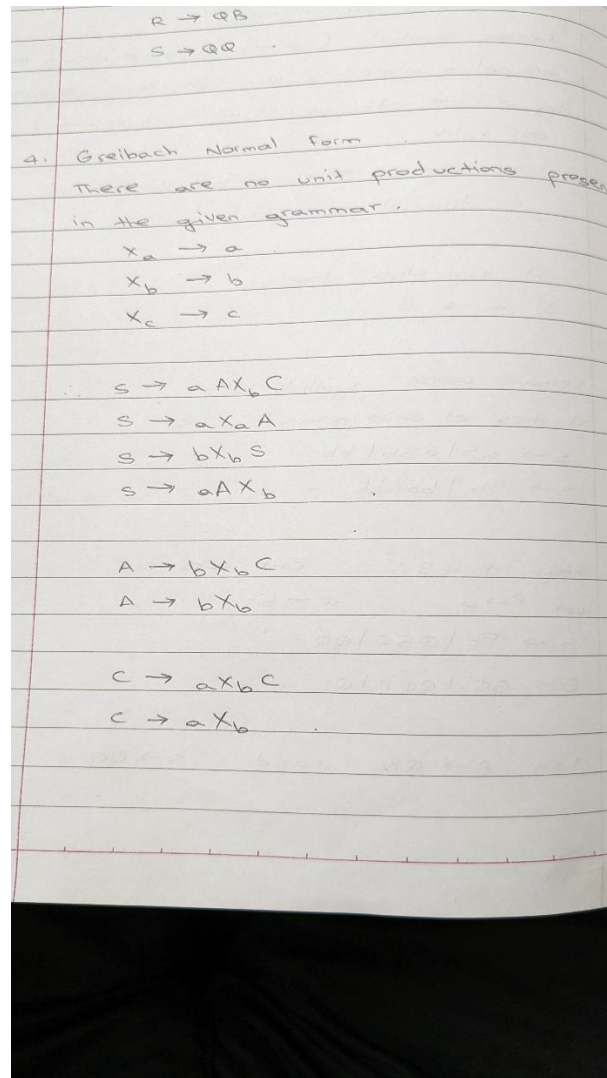 R → QB
S → QQ .
4. Greibach Normal Form .
There are no unit productions presen
in the given grammar.
Xa → a
Xb → b
Xc → c
∴ S → aAXbC
S → aXaA
S → bXbS
S → aAXb
A → bXbC
A → bXb
C → aXbC
C → aXb .